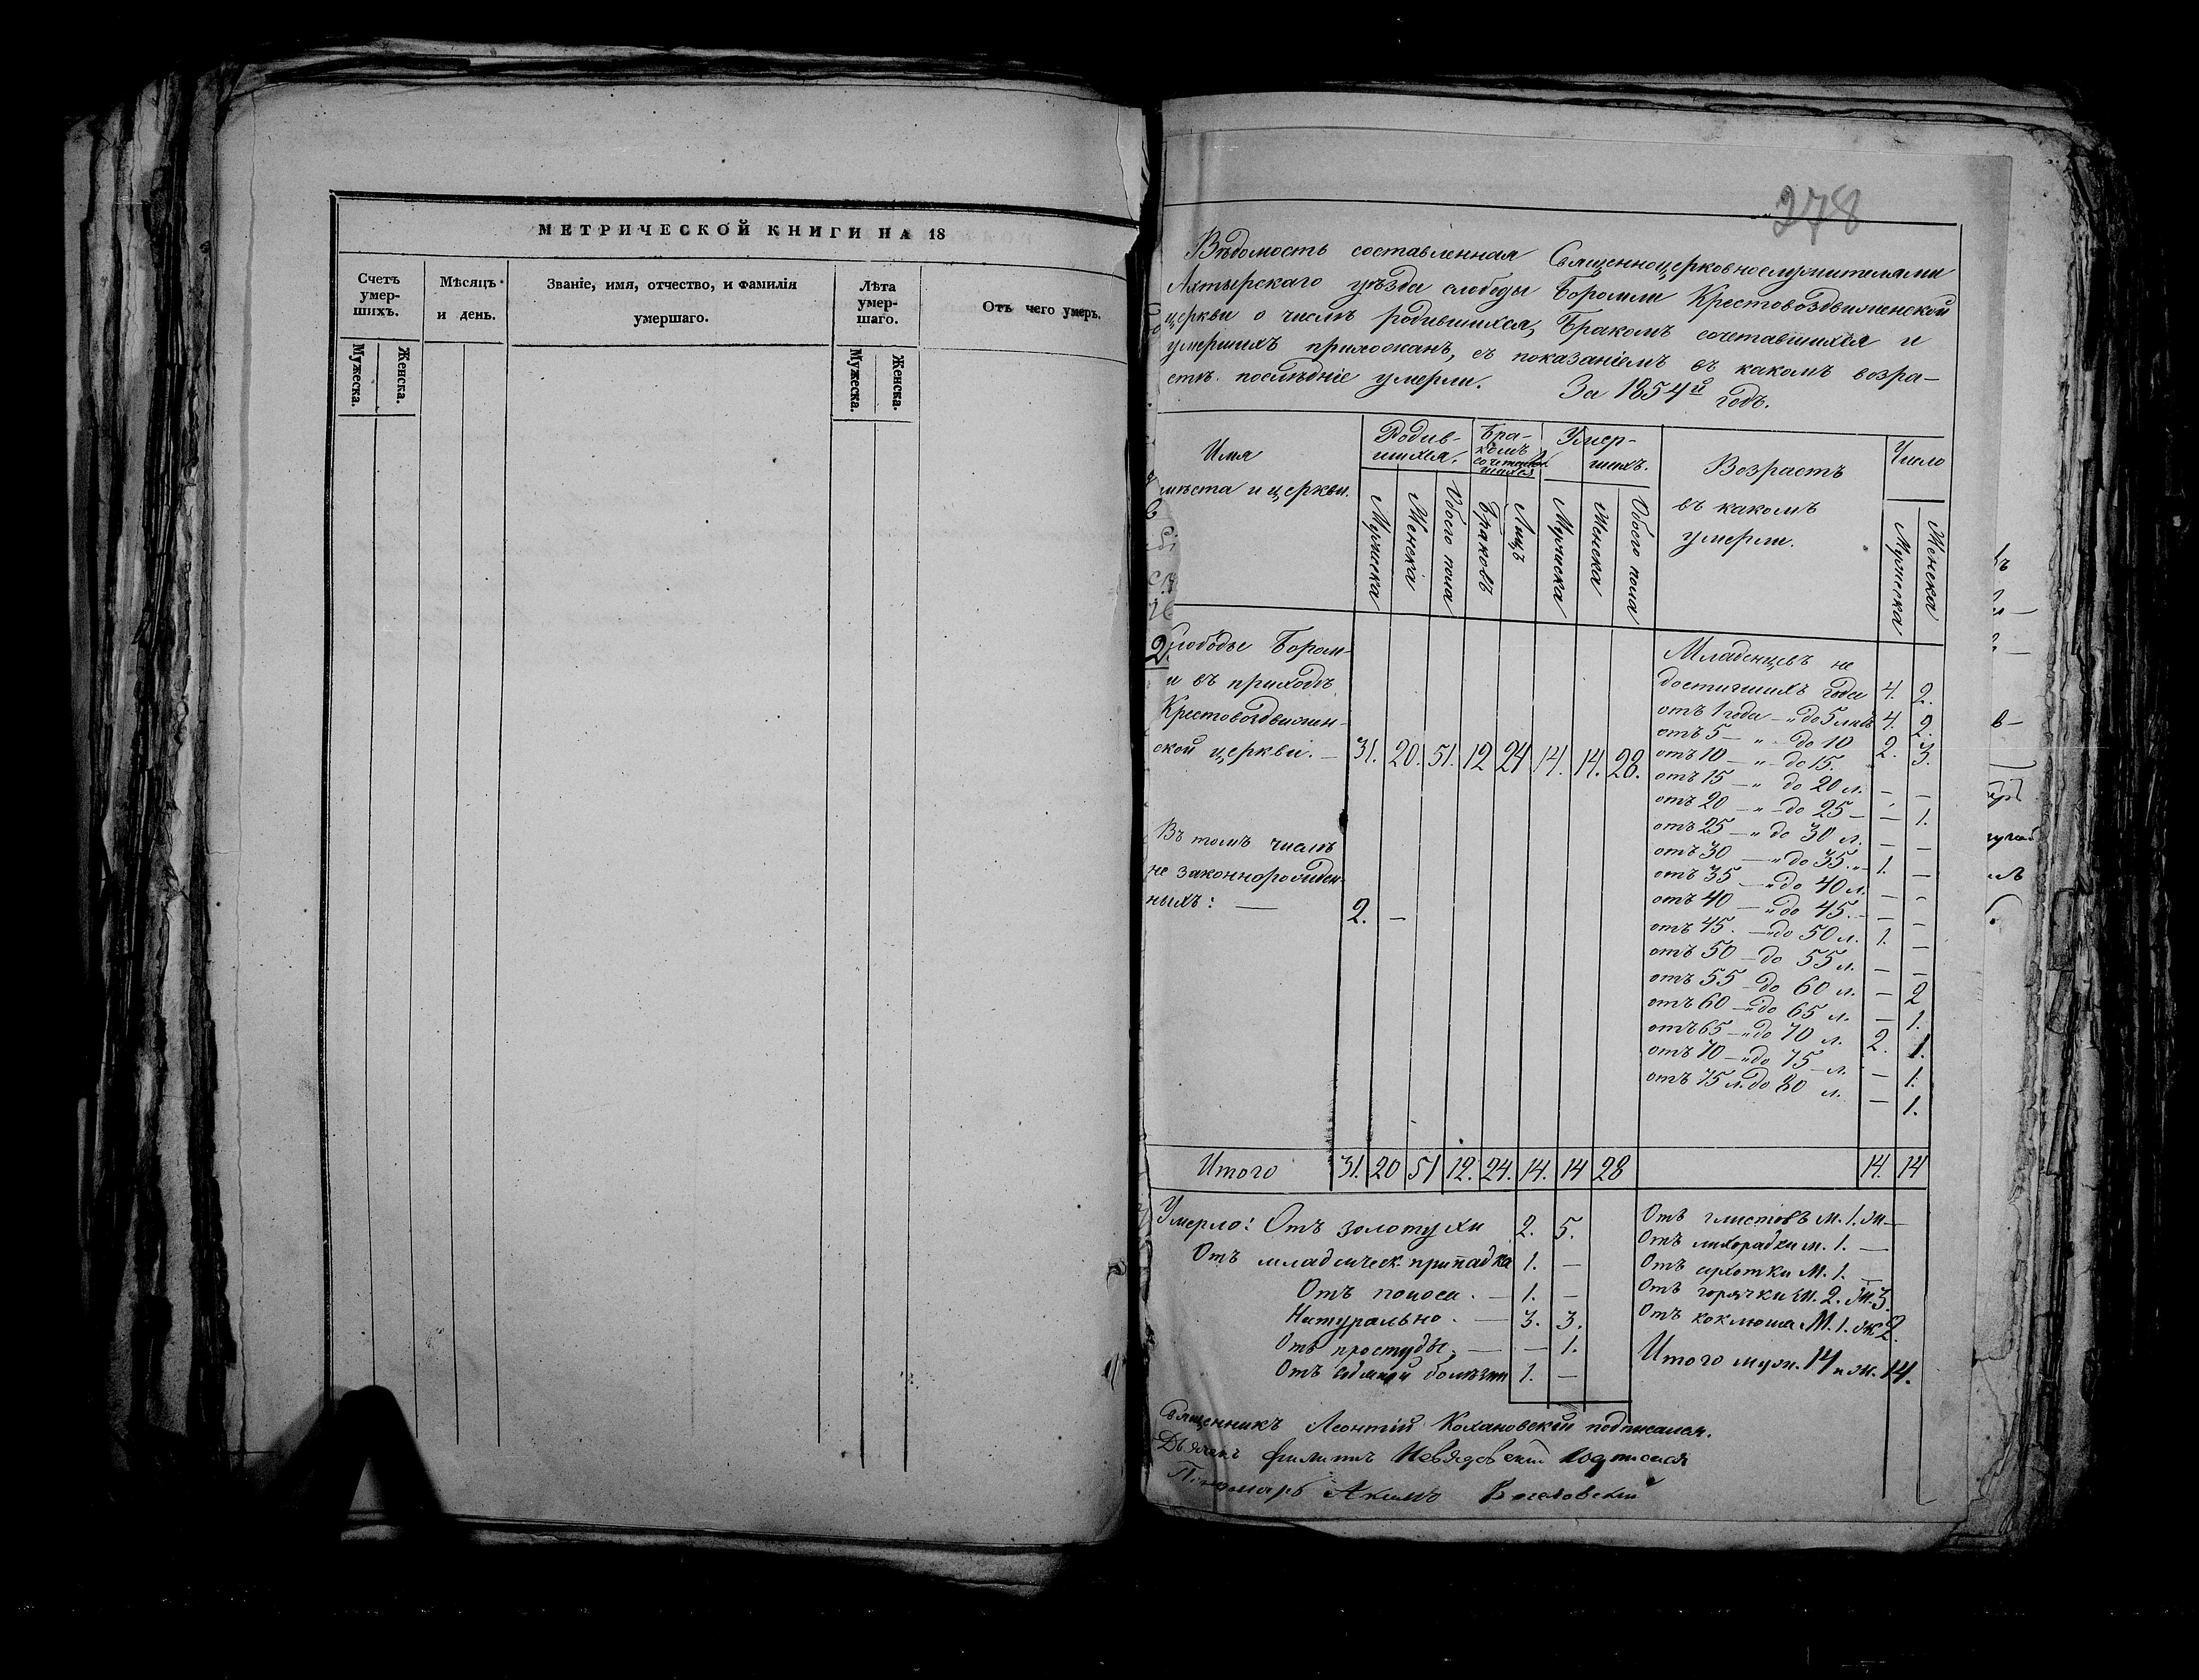 МЕТРИЧЕСКОЙ КНИГИ НА 18
Счетъ умер-шихъ.
Мѣсяцъ и день.
Званіе, имя, отчество, и фамилія умершаго.
Лѣта умер-шаго.
Отъ чего умеръ.
Мужеска.
Женска.
Мужеска.
Женска.
278
Вѣдомость составленная Священноцерковнослужителями
Ахтырскаго уѣзда слободы Боромли Крестовоздвиженской
церкви о числѣ родившихся, Бракомъ сочетавшихся и
умершихъ прихожанъ, съ показаніемъ въ какомъ возра-
стѣ послѣдніе умерли. За 1854й годъ.
Имя
мѣста и церкви.
Родив-
шихся.
Бра-
комъ
сочетав
шихся
Умер-
шихъ.
Возрастъ
въ какомъ
умерли.
Число
Мужеска
Женска
Обоего пола
Браковъ
Лицъ
Мужеска
Женска
Обоего пола
Мужеска
Женска
Слободѣ Бором-
и въ приходѣ
Крестовоздвижен-
ской церкви. — 31. 20. 51. 12 24 14. 14. 28.
Въ томъ числѣ
не законнорожден-
ныхъ: — 2. —
Младенцевъ не
достигшихъ года 4. 2.
отъ 1 года — " до 5 лѣтъ 4. 2.
отъ 5 — " — до 10 2. 3.
отъ 10 — " — до 15.
отъ 15 — " до 20 л. — —
отъ 20 — " — до 25 — — 1.
отъ 25 — " до 30 л. — —
отъ 30 — " до 35. " 1. —
отъ 35 — " до 40 л. — —
отъ 40 — " до 45. — — —
отъ 45. — " до 50 л. 1. —
отъ 50 — до 55 л. — —
отъ 55 — до 60 л. — 2
отъ 60 — " до 65 л. — 1.
отъ 65 — " до 70 л. 2. 1.
отъ 70 — " до 75 — л. — 1.
отъ 75 л. до 80 л. — 1.
Итого 31. 20 51 12. 24. 14. 14 28 14. 14
Умерло: Отъ золотухи 2. 5.
Отъ младенческ. припадка 1. —
Отъ поноса. — 1. —
Натурально. — 3. 3.
Отъ простуды. — — 1.
Отъ болѣзни 1. —
Отъ глистовъ М. 1. ж —
Отъ лихорадки м. 1. —
Отъ сухотки М. 1. —
Отъ горячки М. 2. Ж. 3.
Отъ коклюша М. 1. ж 2.
Итого муж. 14 и ж. 14.
Священникъ Леонтій Кохановскій подписался.
Дьячекъ Филиппъ подписался
Пономарь Акимъ